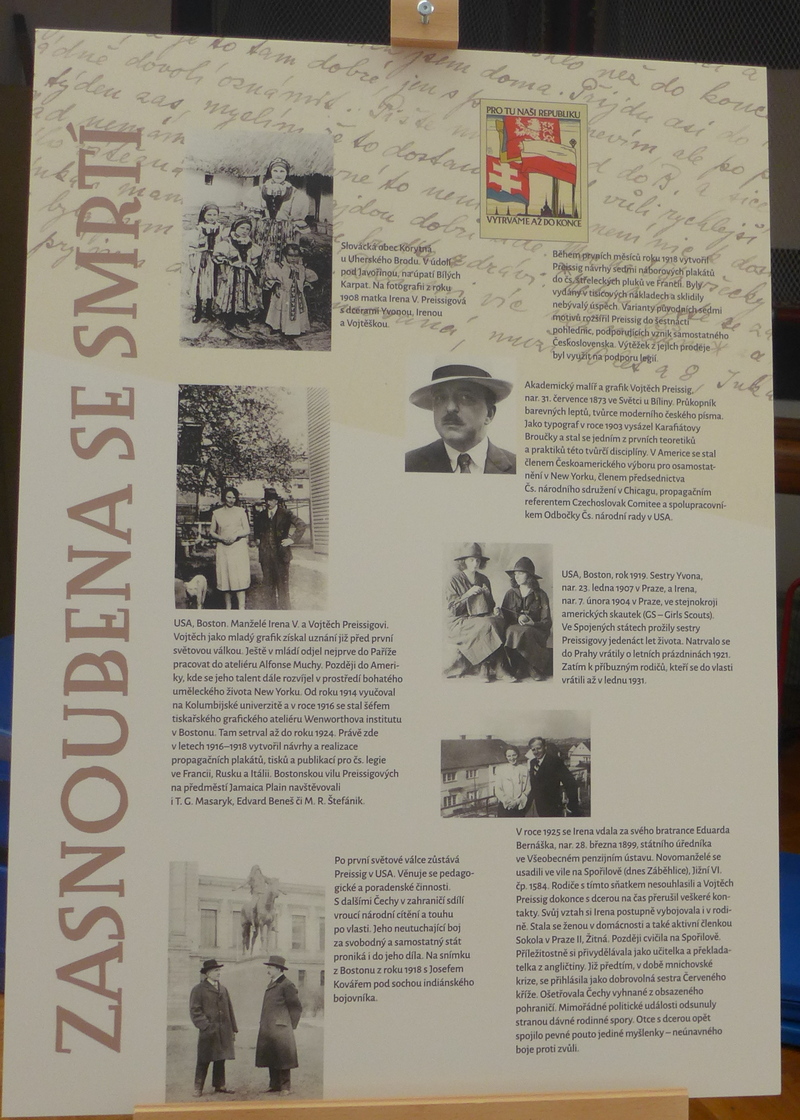 ZASNOUBENA SE SMRTÍ
PRO TU NAŠI REPUBLIKU
VYTRVÁME AŽ DO KONCE
Slovácká obec Korytná
u Uherského Brodu. V údolí
pod Javořinou, na úpatí Bílých
Karpat. Na fotografii z roku
1908 matka Irena V. Preissigová
s dcerami Yvonou, Irenou
a Vojtěškou.
Během prvních měsíců roku 1918 vytvořil
Preissig návrhy sedmi náborových plakátů
do čs. střeleckých pluků ve Francii. Byly
vydány v tisícových nákladech a sklidily
nebývalý úspěch. Varianty původních sedmi
motivů rozšířil Preissig do šestnácti
pohlednic, podporujících vznik samostatného
Československa. Výtěžek z jejich prodeje
byl využit na podporu legií.
Akademický malíř a grafik Vojtěch Preissig,
nar. 31. července 1873 ve Světci u Bíliny. Průkopník
barevných leptů, tvůrce moderního českého písma.
Jako typograf v roce 1903 vysázel Karafiátovy
Broučky a stal se jedním z prvních teoretiků
a praktiků této tvůrčí disciplíny. V Americe se stal
členem Českoamerického výboru pro osamostat-
nění v New Yorku, členem předsednictva
Čs. národního sdružení v Chicagu, propagačním
referentem Czechoslovak Comitee a spolupracovní-
kem Odbočky Čs. národní rady v USA.
USA, Boston, rok 1919. Sestry Yvona,
nar. 23. ledna 1907 v Praze, a Irena,
nar. 7. února 1904 v Praze, ve stejnokroji
amerických skautek (GS – Girls Scouts).
Ve Spojených státech prožily sestry
Preissigovy jedenáct let života. Natrvalo se
do Prahy vrátily o letních prázdninách 1921.
Zatím k příbuzným rodičů, kteří se do vlasti
vrátili až v lednu 1931.
USA, Boston. Manželé Irena V. a Vojtěch Preissigovi.
Vojtěch jako mladý grafik získal uznání již před první
světovou válkou. Ještě v mládí odjel nejprve do Paříže
pracovat do ateliéru Alfonse Muchy. Později do Ameri-
ky, kde se jeho talent dále rozvíjel v prostředí bohatého
uměleckého života New Yorku. Od roku 1914 vyučoval
na Kolumbijské univerzitě a v roce 1916 se stal šéfem
tiskařského grafického ateliéru Wenworthova institutu
v Bostonu. Tam setrval až do roku 1924. Právě zde
v letech 1916–1918 vytvořil návrhy a realizace
propagačních plakátů, tisků a publikací pro čs. legie
ve Francii, Rusku a Itálii. Bostonskou vilu Preissigových
na předměstí Jamaica Plain navštěvovali
i T. G. Masaryk, Edvard Beneš či M. R. Štefánik.
Po první světové válce zůstává
Preissig v USA. Věnuje se pedago-
gické a poradenské činnosti.
S dalšími Čechy v zahraničí sdílí
vroucí národní cítění a touhu
po vlasti. Jeho neutuchající boj
za svobodný a samostatný stát
proniká i do jeho díla. Na snímku
z Bostonu z roku 1918 s Josefem
Kovářem pod sochou indiánského
bojovníka.
V roce 1925 se Irena vdala za svého bratrance Eduarda
Bernáška, nar. 28. března 1899, státního úředníka
ve Všeobecném penzijním ústavu. Novomanželé se
usadili ve vile na Spořilově (dnes Záběhlice), Jižní VI.
čp. 1584. Rodiče s tímto sňatkem nesouhlasili a Vojtěch
Preissig dokonce s dcerou na čas přerušil veškeré kon-
takty. Svůj vztah si Irena postupně vybojovala i v rodi-
ně. Stala se ženou v domácnosti a také aktivní členkou
Sokola v Praze II, Žitná. Později cvičila na Spořilově.
Příležitostně si přivydělávala jako učitelka a překlada-
telka z angličtiny. Již předtím, v době mnichovské
krize, se přihlásila jako dobrovolná sestra Červeného
kříže. Ošetřovala Čechy vyhnané z obsazeného
pohraničí. Mimořádné politické události odsunuly
stranou dávné rodinné spory. Otce s dcerou opět
spojilo pevné pouto jediné myšlenky – neúnavného
boje proti zvůli.